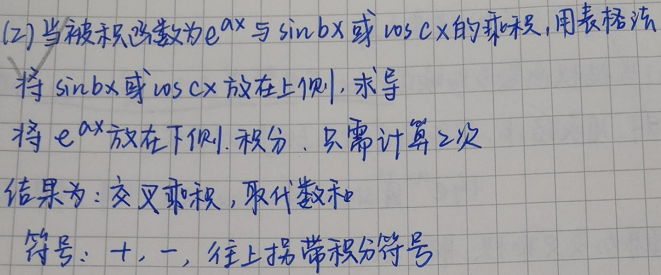 (2)当被积函数为e^ax与sinbx或cos cx的乘积,用表格法
将sinbx或cos cx放在上侧,求导
将e^ax放在下侧.积分.只需计算2次
结果为:交叉乘积,取代数和
符号:+,-,往上拐带积分符号